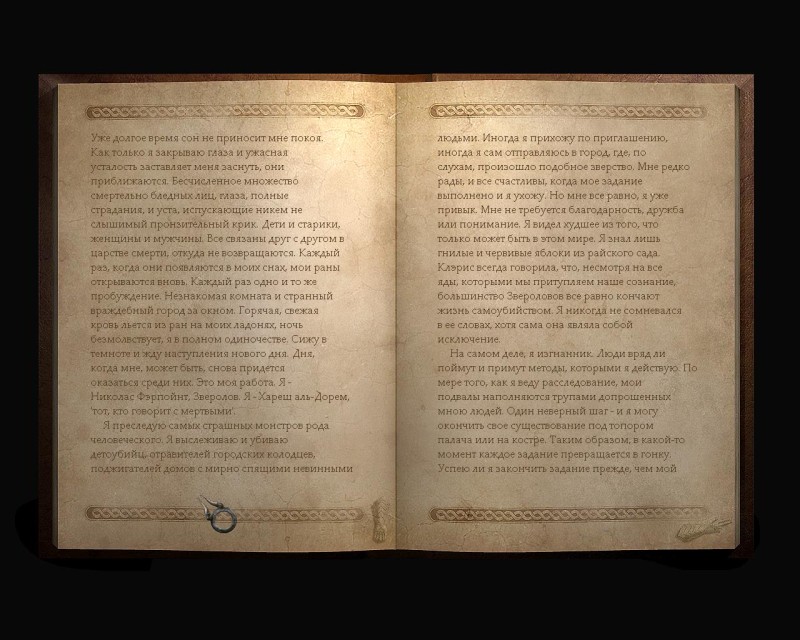 Уже долгое время сон не приносит мне покоя.
Как только я закрываю глаза и ужасная
усталость заставляет меня заснуть, они
приближаются. Бесчисленное множество
смертельно бледных лиц, глаза, полные
страдания, и уста, испускающие никем не
слышимый пронзительный крик. Дети и старики,
женщины и мужчины. Все связаны друг с другом в
царстве смерти, откуда не возвращаются. Каждый
раз, когда они появляются в моих снах, мои раны
открываются вновь. Каждый раз одно и то же
пробуждение. Незнакомая комната и странный
враждебный город за окном. Горячая, свежая
кровь льется из ран на моих ладонях, ночь
безмолвствует, я в полном одиночестве. Сижу в
темноте и жду наступления нового дня. Дня,
когда мне, может быть, снова придется
оказаться среди них. Это моя работа. Я -
Николас Фэрпойнт, Зверолов. Я - Хареш аль-Дорем,
'тот, кто говорит с мертвыми'.
Я преследую самых страшных монстров рода
человеческого. Я выслеживаю и убиваю
детоубийц, отравителей городских колодцев,
поджигателей домов с мирно спящими невинными
людьми. Иногда я прихожу по приглашению,
иногда я сам отправляюсь в город, где, по
слухам, произошло подобное зверство. Мне редко
рады, и все счастливы, когда мое задание
выполнено и я ухожу. Но мне все равно, я уже
привык. Мне не требуется благодарность, дружба
или понимание. Я видел худшее из того, что
только может быть в этом мире. Я знал лишь
гнилые и червивые яблоки из райского сада.
Клэрис всегда говорила, что, несмотря на все
яды, которыми мы притупляем наше сознание,
большинство Звероловов все равно кончают
жизнь самоубийством. Я никогда не сомневался
в ее словах, хотя сама она являла собой
исключение.
На самом деле, я изгнанник. Люди вряд ли
поймут и примут методы, которыми я действую. По
мере того, как я веду расследование, мои
подвалы наполняются трупами допрошенных
мною людей. Один неверный шаг - и я могу
окончить свое существование под топором
палача или на костре. Таким образом, в какой-то
момент каждое задание превращается в гонку.
Успею ли я закончить задание прежде, чем мой